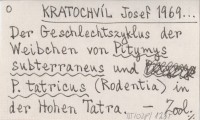 O KRATOCHVÍL Josef 1969...
Der Geschlechtszyklus der
Weibchen von Pitymys
subterraneus und
P. tatricus (Rodentia) in
der Hohen Tatra. — Zool.